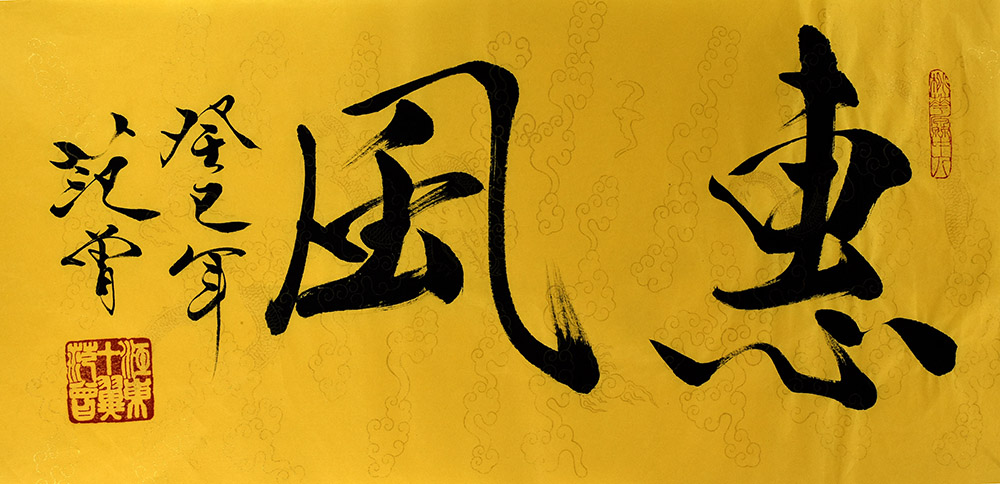 惠風
癸巳年
范曾
江東
十翼
范曾